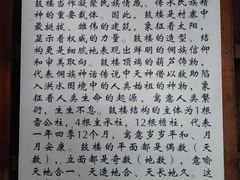 鼓楼当作凝聚民族情感、传承民族精
神的重要载体。因此，鼓楼是村寨中
最挺拔、雄伟的建筑，象征着太阳，
显示着权威的力量。鼓楼的造型、结
构更是细腻地表现出鲜明的侗族信仰
和审美取向。鼓楼顶端的葫芦饰物，
代表侗族神话传说中天神借以救助陷
入洪水困境中的人类的神物，象
征着人类生命的起源，寓意人类繁
衍，生生不息。鼓楼结构的主体为1根
雷公柱，4根主承柱，12根檐柱，代表
一年四季12个月，寓意岁岁平和、月
月安康。鼓楼的平面都是偶数（天
数），立面都是奇数（地数），意喻
天地合一、天造地合、天长地久。这